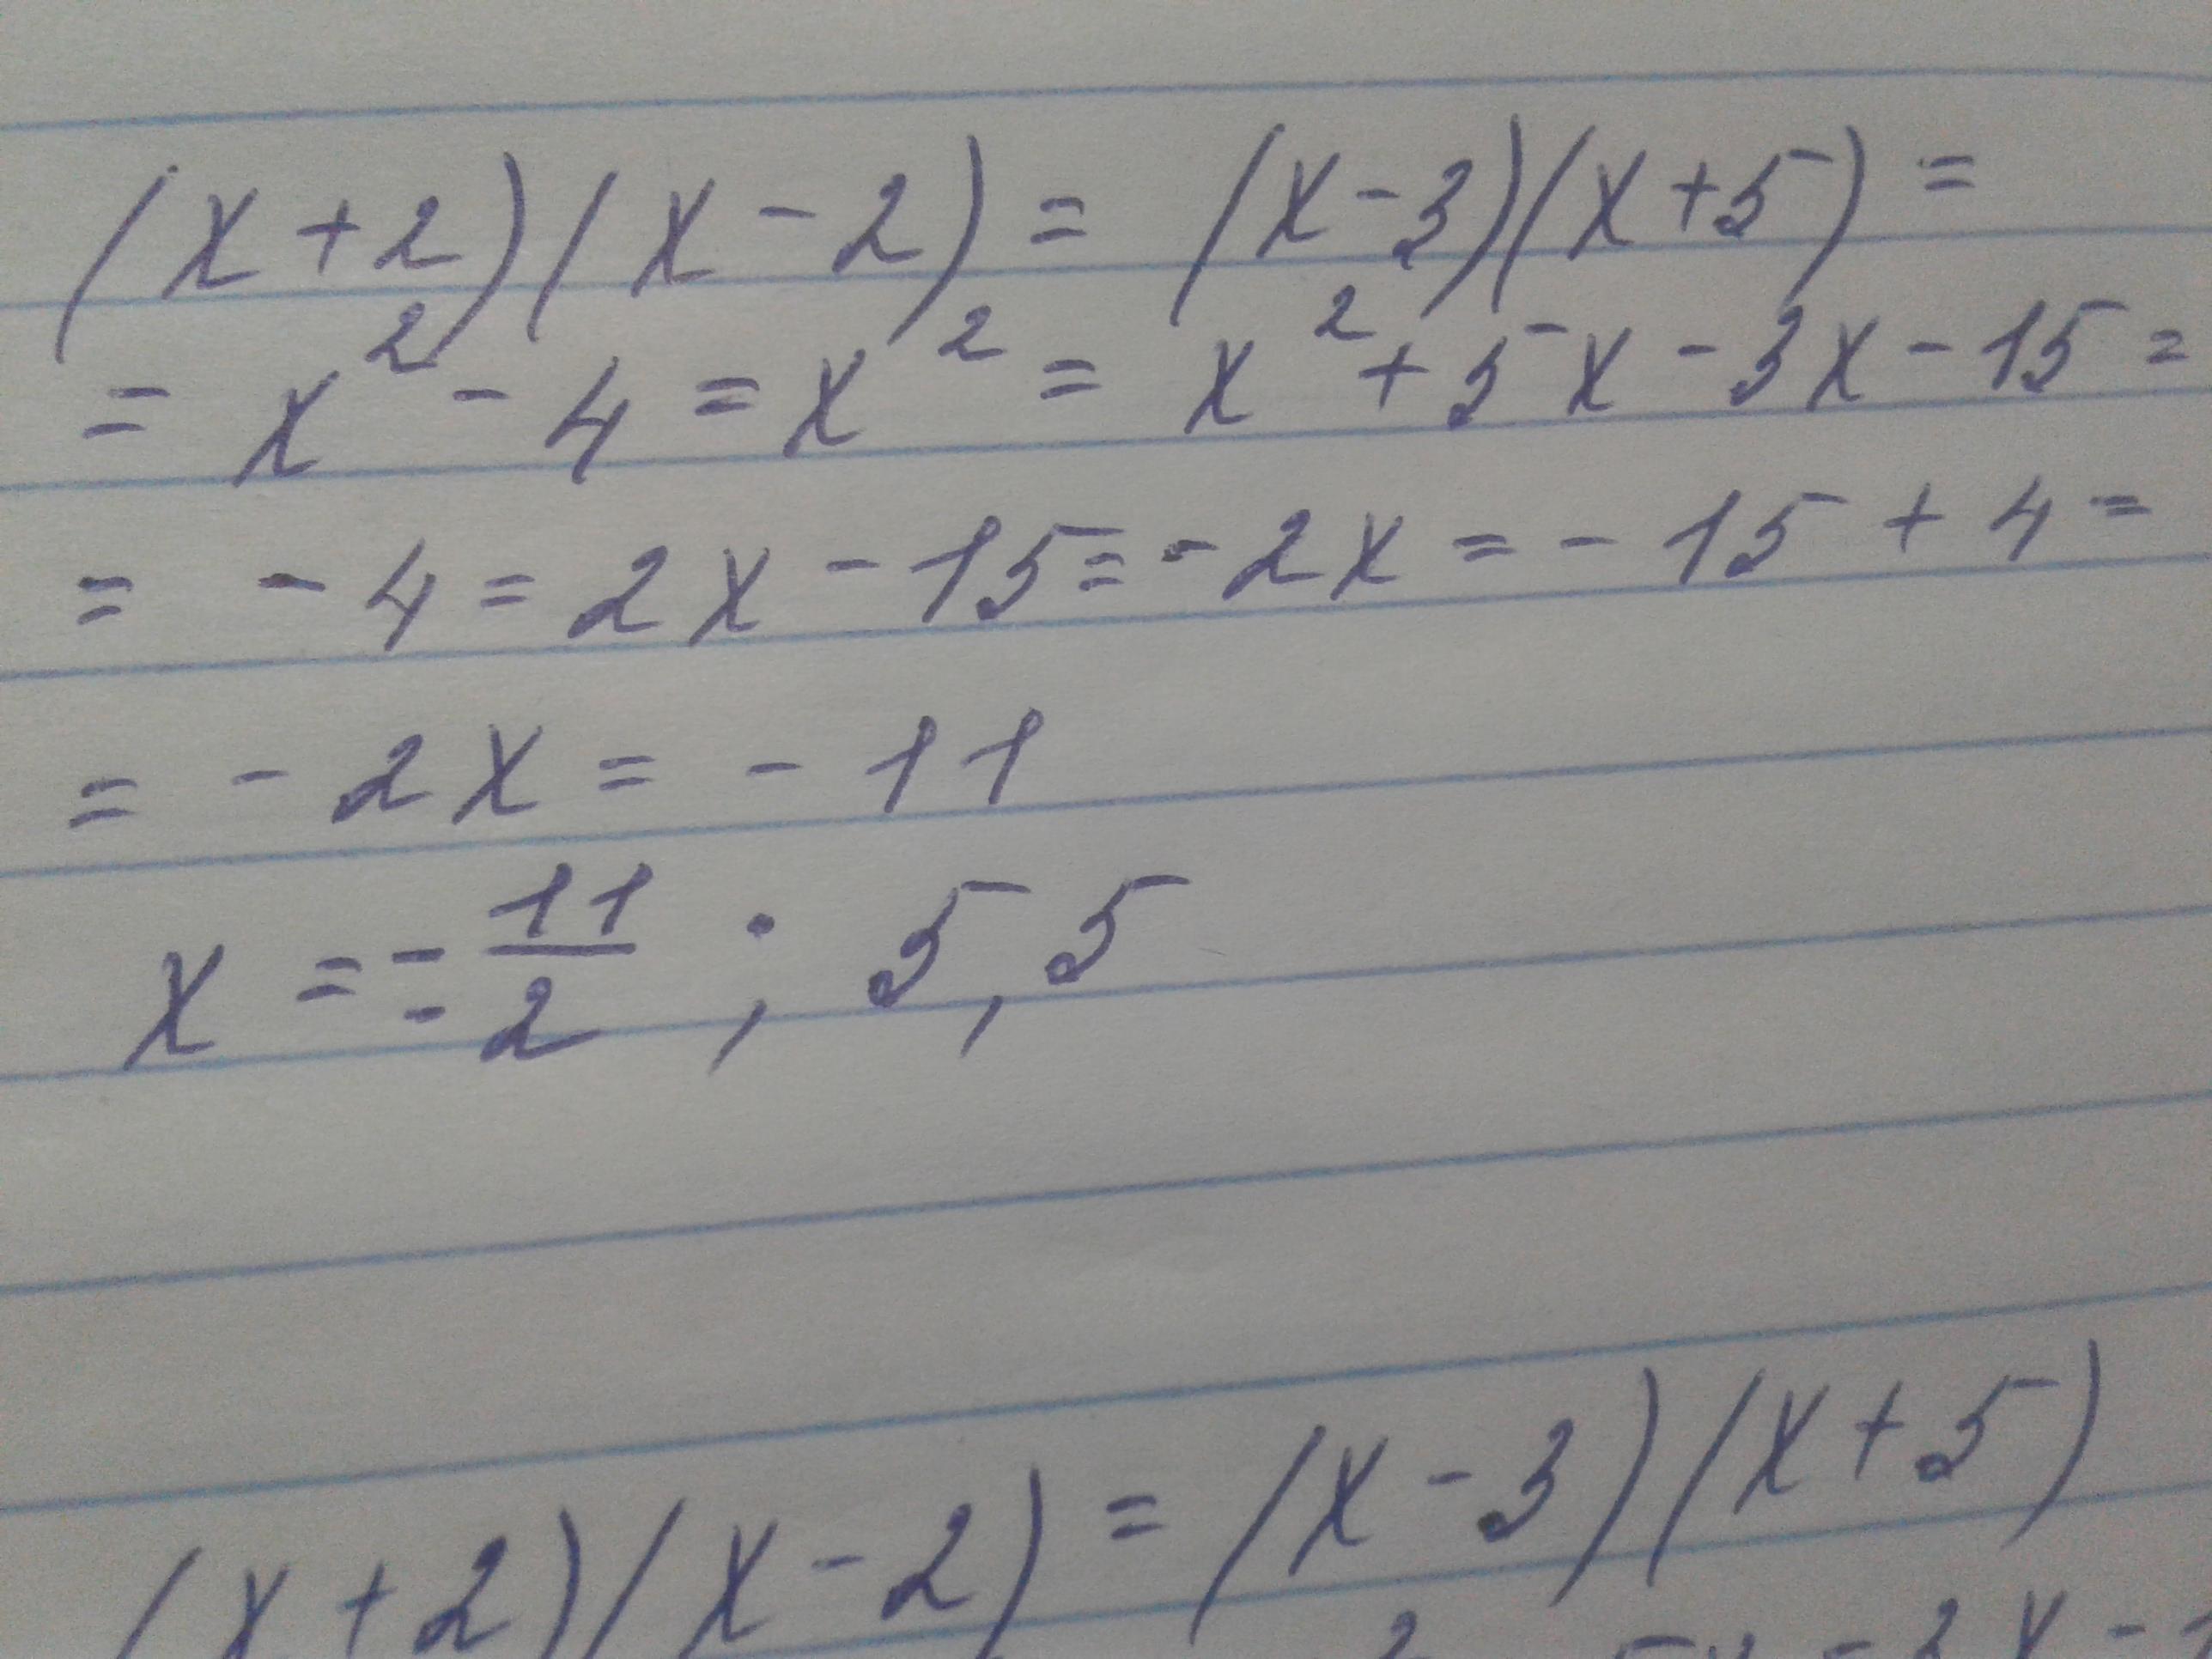 (x + 2)(x - 2) = (x - 3)(x + 5) =
= x² - 4 = x² = x² + 5x - 3x - 15 =
= - 4 = 2x - 15 = - 2x = - 15 + 4 =
= - 2x = - 11
x = -11/-2 ; 5,5
(x + 2)(x - 2) = (x - 3)(x + 5)